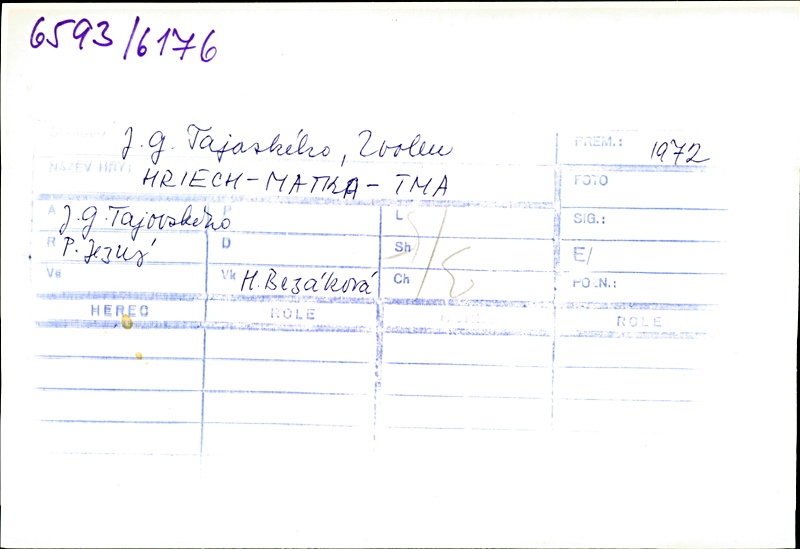 6593/6176
J. G. Tajovského, Zvolen
PREM.: 1972
NÁZEV HRY
HRIECH - MATKA - TMA
FOTO
A J. G. Tajovského
P
L
SIG.:
R P. Jezný
D
Sh
E/
Ve
Vk H. Bezáková
Ch
POZN.:
HEREC
ROLE
ROLE